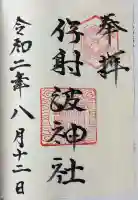 奉拝
伊射波神社
令和二年八月十二日